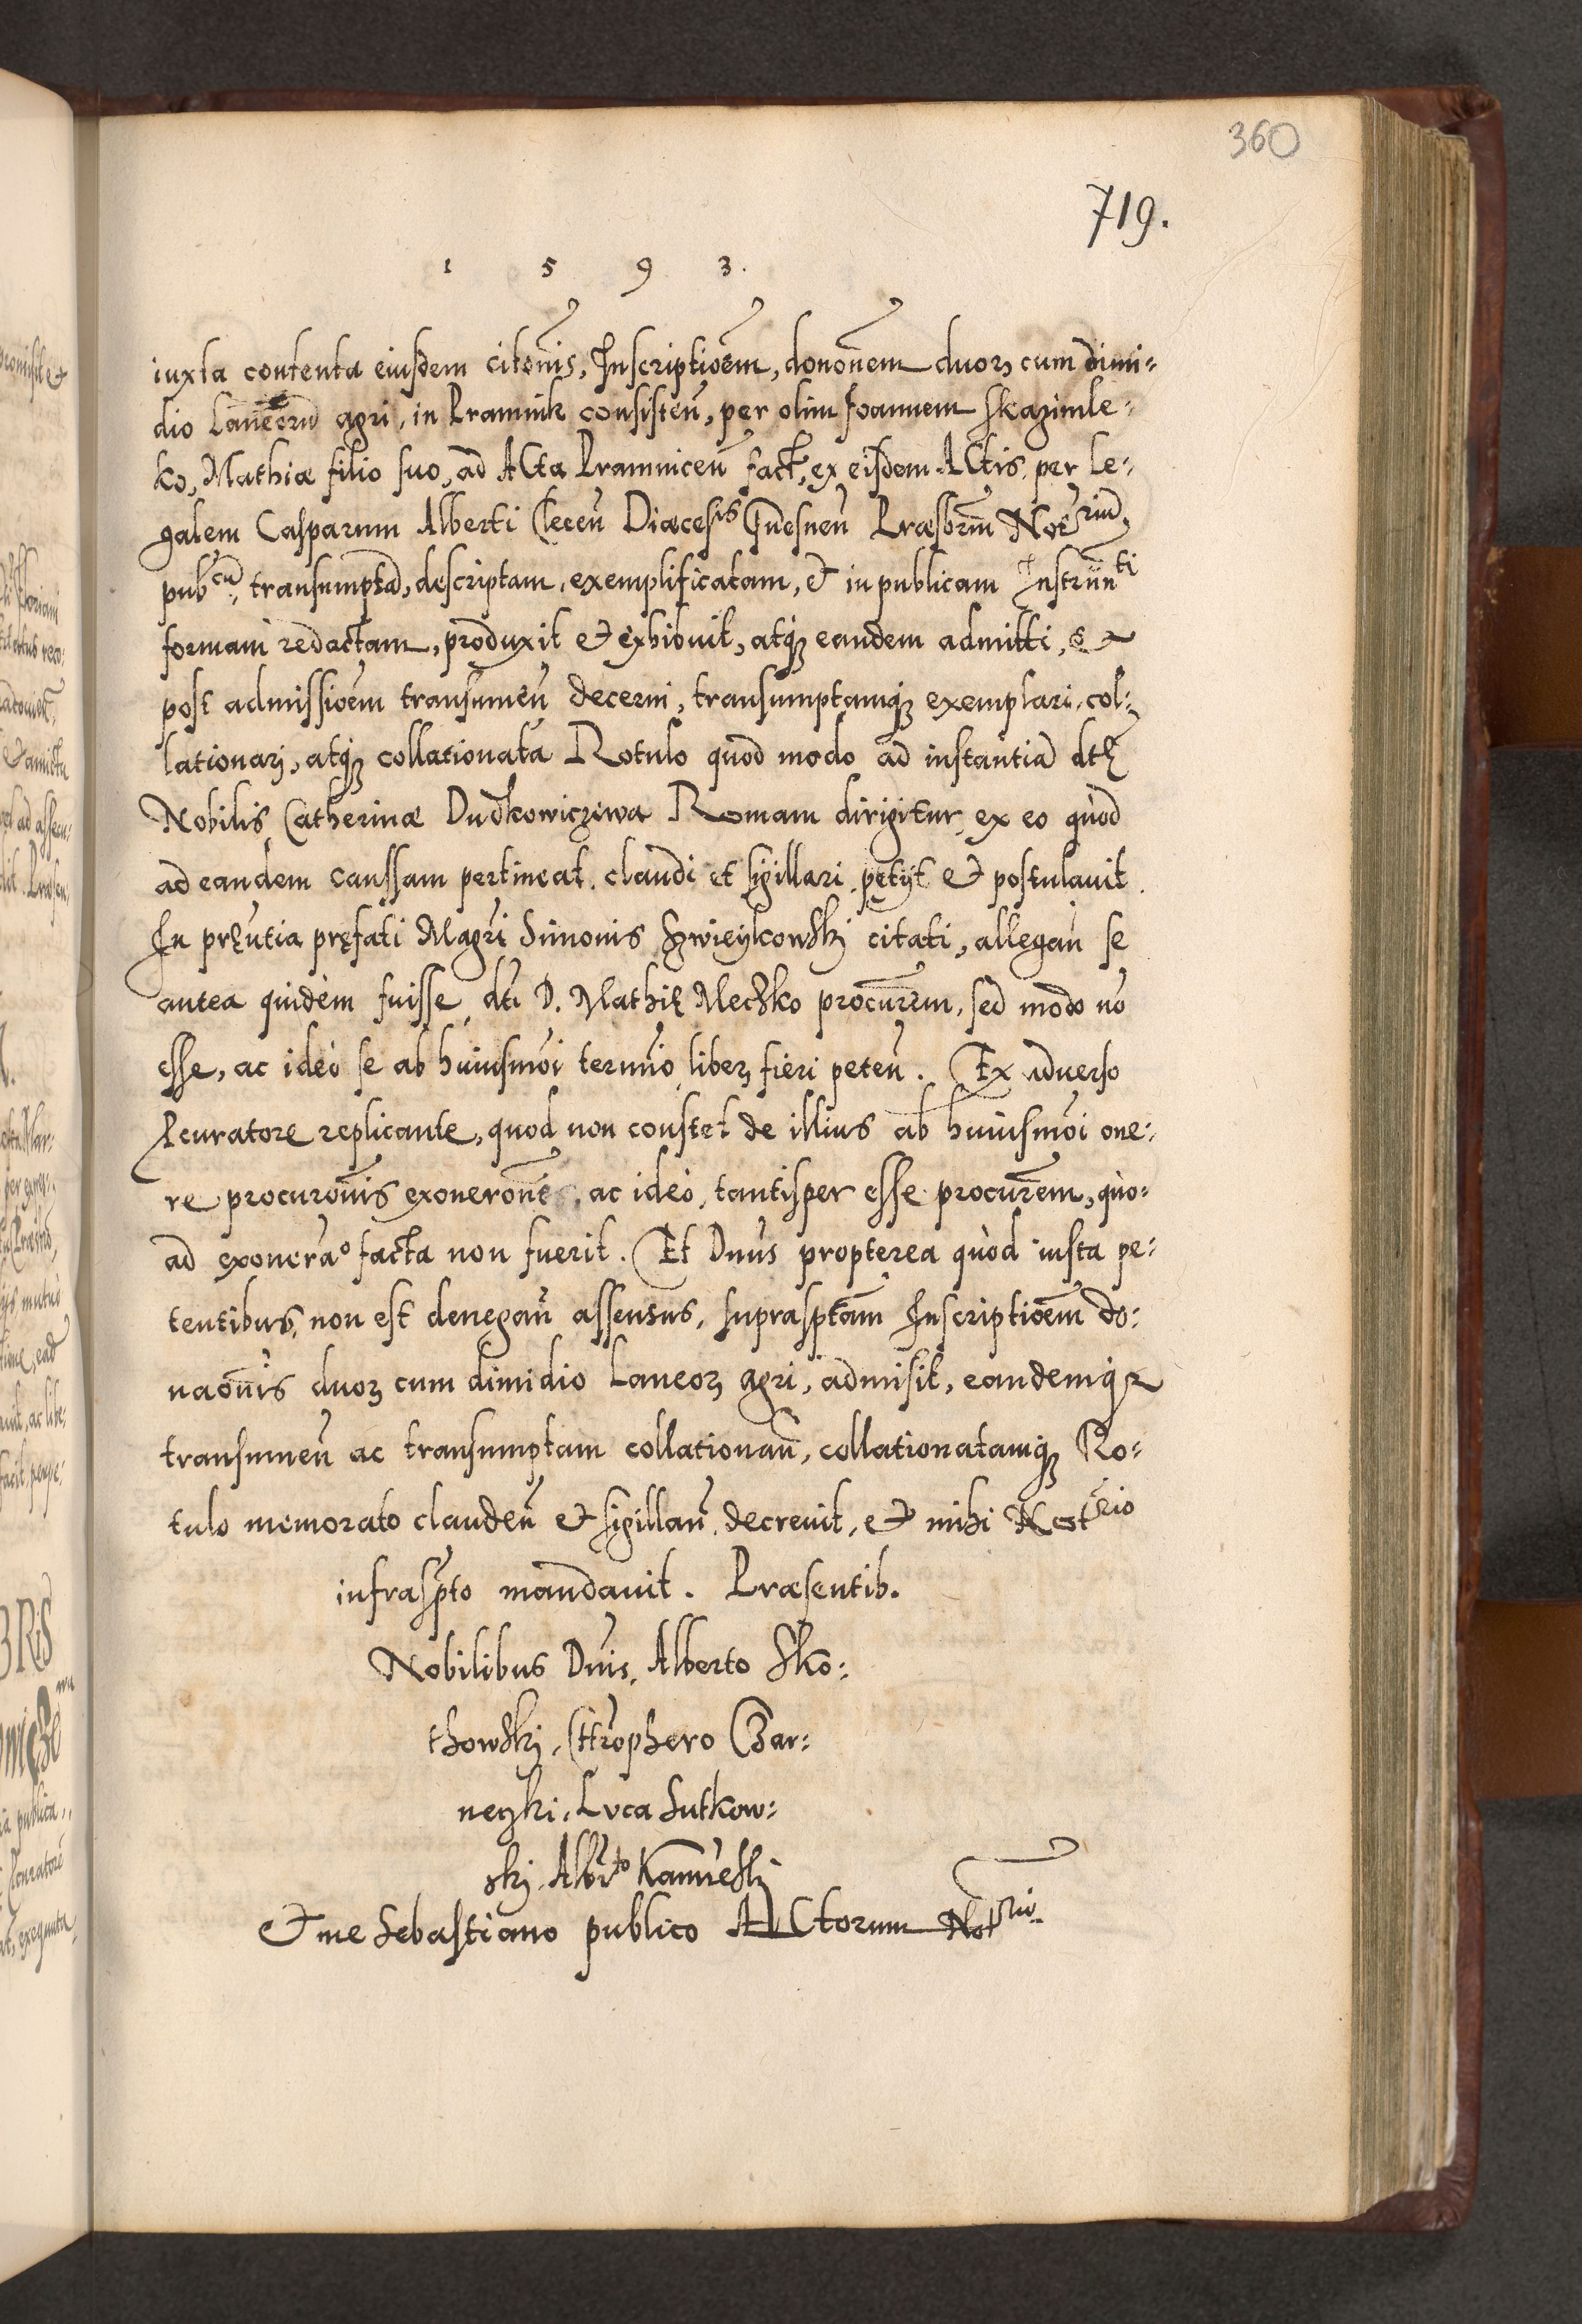 360
719.
1 5 9 3.
iuxta contenta eiusdem citõnis, Inscriptioẽm, donõnem duorꝫ cum dimi-
dio Laneorũ agri, in Pramnik consisteñ, per olim Joannem Skazimle-
ko, Mathiæ filio suo, ad Acta Pramniceñ fact, ex eisdem Actis, per Le-
galem Casparum Alberti Cleceñ Diæcesis Gnesneñ Præsbrm̃ Notriũ,
pubcũ, transumptã, descriptam, exemplificatam, et in publicam Instrũnti
formam redactam, produxit et exhibuit, atqꝫ eandem admitti, et
post admissioẽm transumeñ decerni, transumptamqꝫ exemplari, col-
lationari, atqꝫ collationatã Rotulo quod modo ad instantiã dtę
Nobilis Catherinæ Dudkowiczowa Romam dirigitur, ex eo quòd
ad eandem caussam pertineat, claudi et sigillari petijt et postulauit.
In prńtia pręfati Magri Simonis citati, allegañ se
antea quidem fuisse dti D. Mathię Meczko procurem̃, sed modo nõ
esse, ac ideò se ab huiusmõi termĩo liberꝫ fieri peteñ. Ex aduerso
Pcuratore replicante, quod non constet de illius ab huiusmõi one-
re procurõnis exonerõne, ac ideò, tantisper esse procurem̃, quo-
ad exonerão facta non fuerit. Et Dnus propterea quòd iusta pe-
tentibus, non est denegañ assensus, suprasptam̃ Inscriptioẽm do-
naõnis duorꝫ cum dimidio Laneorꝫ agri, admisit, eandemqꝫ
transumeñ ac transumptam collationañ, collationatamqꝫ Ro-
tulo memorato claudeñ et sigillañ decreuit, et mihi Notrio
infraspto mandauit. Præsentib.
Nobilibus Dnis, Alberto Sko-
thowskj, Chrophero Czar-
neczki, Luca Sutkow-
skj, Albrto Kamieskj
Et me Sebastiano publico Actorum Notrio